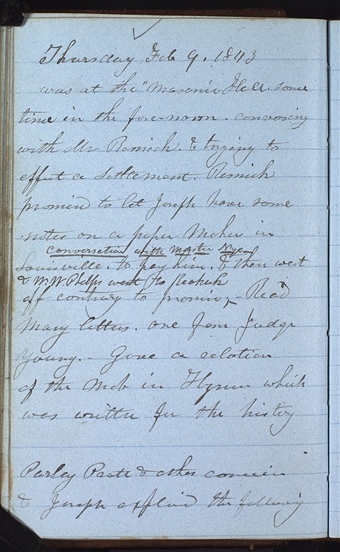 Thursday Feb 9, 1843
was at the "Masonic Hall some
time in the fore-noon. conversing
with Mr Remick. & trying to
effect a settlement. Remick
promised to let Joseph have some
notes on a paper Maker in
conversation with Master
Louisville. to pay him. & then went
& W. W Phelps went to Keokuk
off contrary to promise. Read
Many letters. one from Judge
Young. - Gave a relation
of the Mob in Hymn which
was written for the history
Parley Pratt & other
& Joseph explaind the following